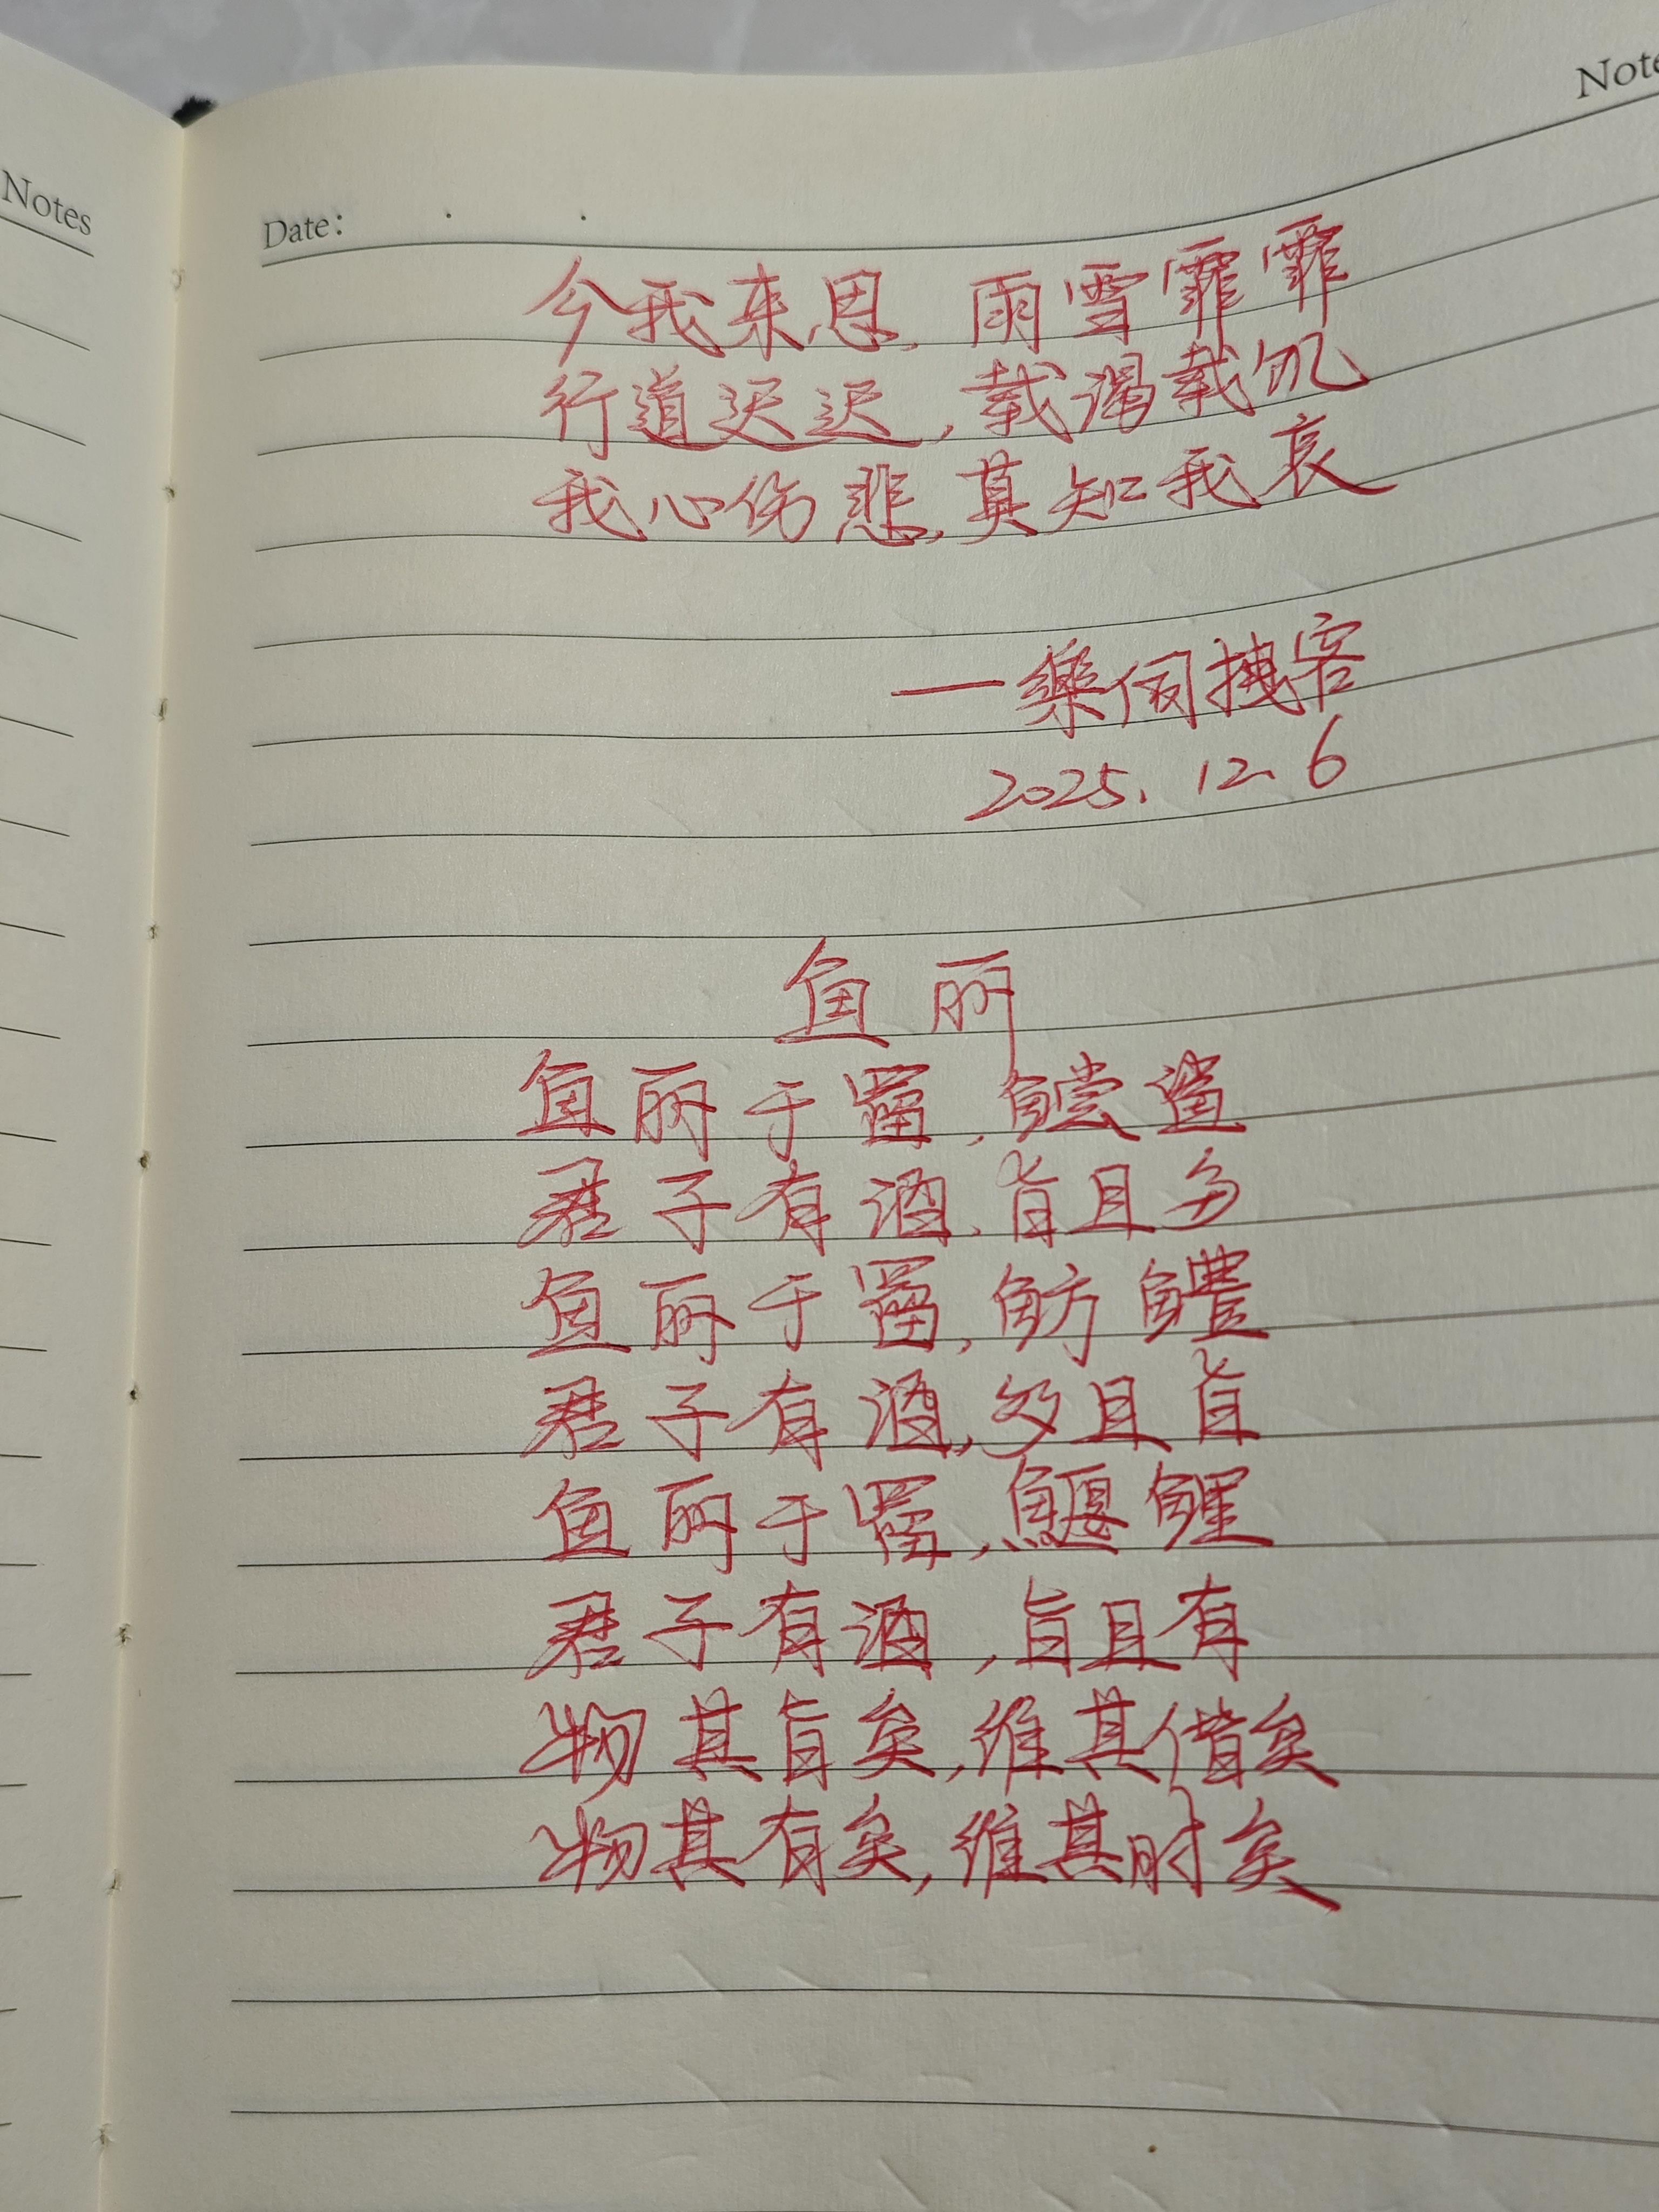 Notes
Date:
今我来思,雨雪霏霏
行道迟迟,载渴载饥
我心伤悲,莫知我哀
2025.12.6
鱼丽
鱼丽于罶,鲿鲨
君子有酒,旨且多
鱼丽于罶,鲂鳢
君子有酒,多且旨
鱼丽于罶,鰋鲤
君子有酒,旨且有
物其旨矣,维其偕矣
物其有矣,维其时矣